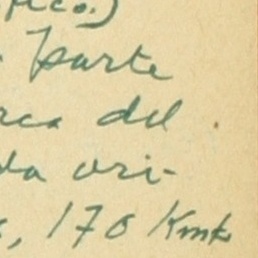 ico.)
parte
rca del
da ori-
, 170 Kmts